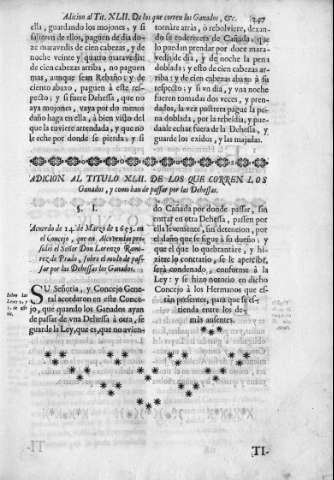 Adicion al Tit. XLII. De los que corren los Ganados, &c. 247
ella, guardando los mojones, y si
salieren de ellos, paguen de dia do-
ze maravedis de cien cabezas, y de
noche veinte y quatro maravedis
de cien cabezas arriba, no paguen
mas, aunque sean Rebaño; y de
ciento abaxo, paguen à este res-
pecto; y si fuere Dehessa, que no
aya mojones, vaya por do menos
daño haga en ella, à bien visto del
que la tuviere arrendada, y que no
le eche por donde se pierda: y si
tornàre atràs, o rebolviere, dexan-
do el enderecera de Cañada, que
lo puedan prendar por doze mara-
vedis de dia, y de noche la pena
doblada; y esto de cien cabezas ar-
riba; y de cien cabezas abaxo à su
respecto; y si vn dia, y vna noche
fueren tomadas dos vezes, y pren-
dados, la vez postrera pague la pe-
na doblada, por la rebeldia, y pue-
danle echar fuera de la Dehessa, y
guarde los exidos, y las majadas.
ADICION AL TITULO XLII. DE LOS QUE CORREN LOS
Ganados, y como han de passar por las Dehessas.
§. I.
Acuerdo de 14. de Março de 1633. en
el Concejo, que en Alcovendas pre-
sidiò el Señor Don Lorenço Rami-
rez de Prado, sobre el modo de pas-
sar por las Dehessas los Ganados.
SU Señoria, y Concejo Gene-
ral acordaron en este Conce-
jo, que quando los Ganados ayan
de passar de vna Dehessa à otra, se
guarde la Ley, que es, que no avien-
do Cañada por donde passar, sin
entrar en otra Dehessa, passen por
ella levemente, sin detencion, por
el daño que se sigue à su dueño; y
que el que lo quebrantare, y hi-
ziere lo contrario, se le apercibe,
serà condenado, conforme à la
Ley: y se hizo notorio en dicho
Concejo à los Hermanos que es-
tàn presentes, para que se es-
tienda entre los de-
màs ausentes.
TI-